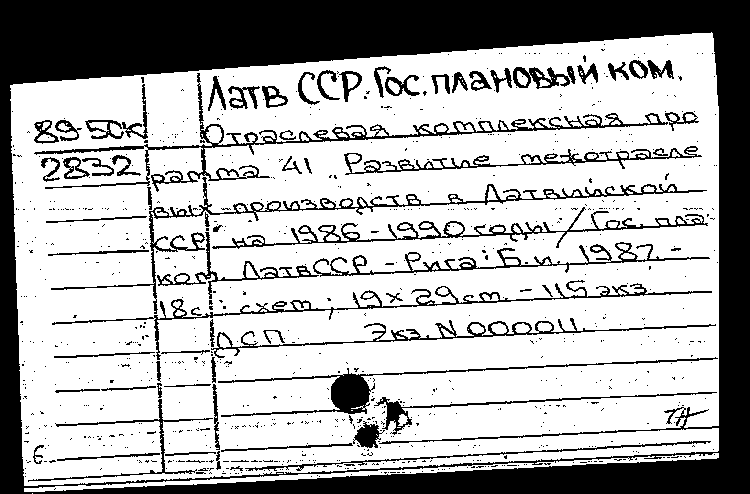 Латв ССР. Гос. плановый ком.
89-50к Отраслевая комплексная про
2832 рамма 41 "Развитие межотрасле
вых производств в Латвийской
ССР" на 1986-1990 годы / Гос. пла.
ком. ЛатвССР. - Рига: Б.и., 1987. -
18с.: схем; 19×29см. - 115 экз.
ДСП Экз. N 000011.
6